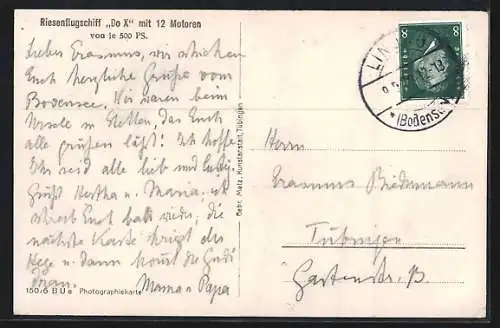 Riesenflugschiff „Do X" mit 12 Motoren
von je 500 PS.
Lieber Erasmus, wir schicken
Euch herzliche Grüße vom
Bodensee. Wir waren beim
in Stetten, das Euch
alle grüßen läßt! Ich hoffe
Ihr seid alle lieb und
Grüßt Hertha u. Maria, ich
Euch bald wieder, die
nächste Karte kriegt der
u. dann kommt die
dran. Mama u Papa
150/6 B U a Photographiekarte
Gebr. Metz, Kunstanstalt, Tübingen
8 8
(Bodensee)
Herrn
Erasmus Biedermann
Tübingen
Gartenstr.